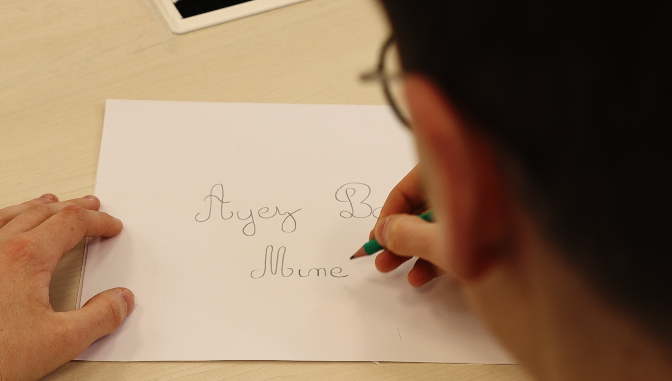 Ayez Ba
Mine